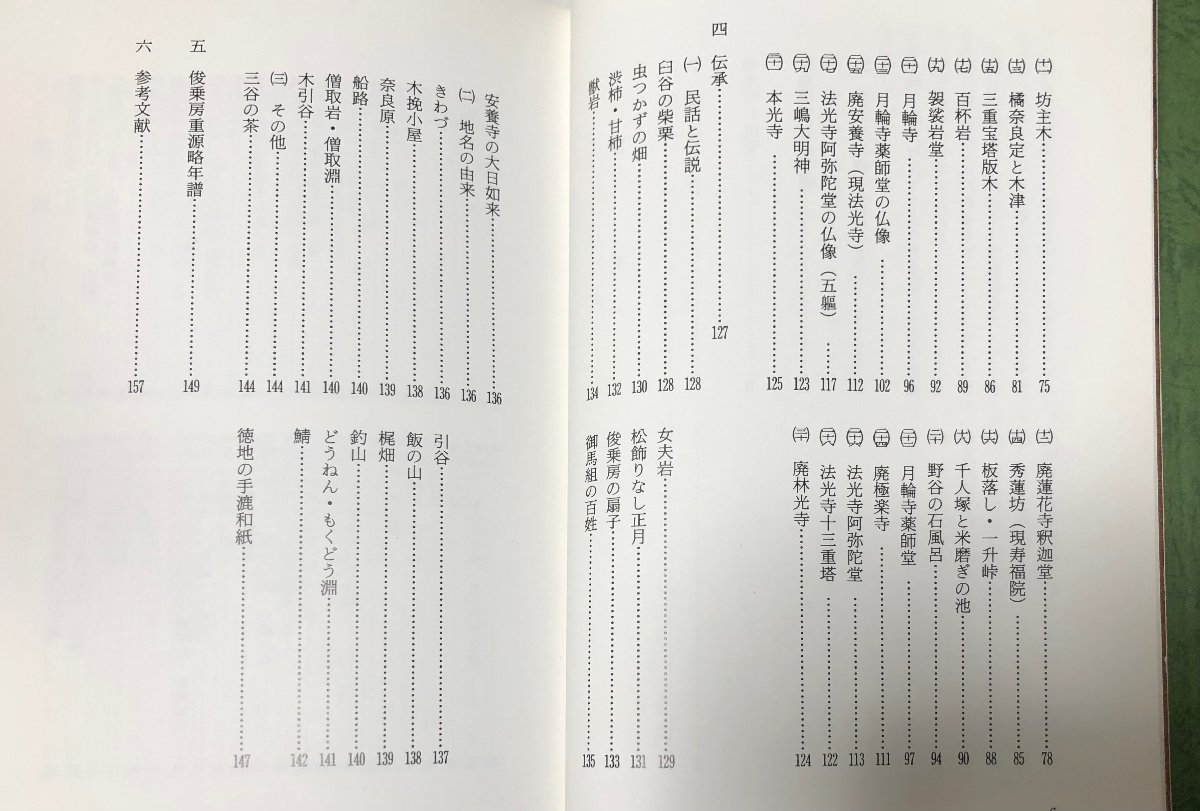 (十一) 坊主木……75
(十二) 廃蓮花寺釈迦堂……78
(十三) 橘奈良定と木津……81
(十四) 秀蓮坊（現寿福院）……85
(十五) 三重宝塔版木……86
(十六) 板落し・一升峠……88
(十七) 百杯岩……89
(十八) 千人塚と米磨ぎの池……90
(十九) 袈裟岩堂……92
(二十) 野谷の石風呂……94
(二十一) 月輪寺……96
(二十二) 月輪寺薬師堂……97
(二十三) 月輪寺薬師堂の仏像……102
(二十四) 廃極楽寺……111
(二十五) 廃安養寺（現法光寺）……112
(二十六) 法光寺阿弥陀堂……113
(二十七) 法光寺阿弥陀堂の仏像（五軀）……117
(二十八) 法光寺十三重塔……122
(二十九) 三嶋大明神……123
(三十) 廃林光寺……124
(三十一) 本光寺……125
四 伝承……127
(一) 民話と伝説……128
臼谷の柴栗……128
女夫岩……129
虫つかずの畑……130
松飾りなし正月……131
渋柿・甘柿……132
俊乗房の扇子……133
獣岩……134
御馬組の百姓……135
安養寺の大日如来……136
(二) 地名の由来……136
きわづ……136
引谷……137
木挽小屋……138
飯の山……138
奈良原……139
梶畑……139
船路……140
釣山……140
僧取岩・僧取淵……140
どうねん・もくどう淵……141
木引谷……141
鯖……142
(三) その他……144
三谷の茶……144
徳地の手漉和紙……147
五 俊乗房重源略年譜……149
六 参考文献……157